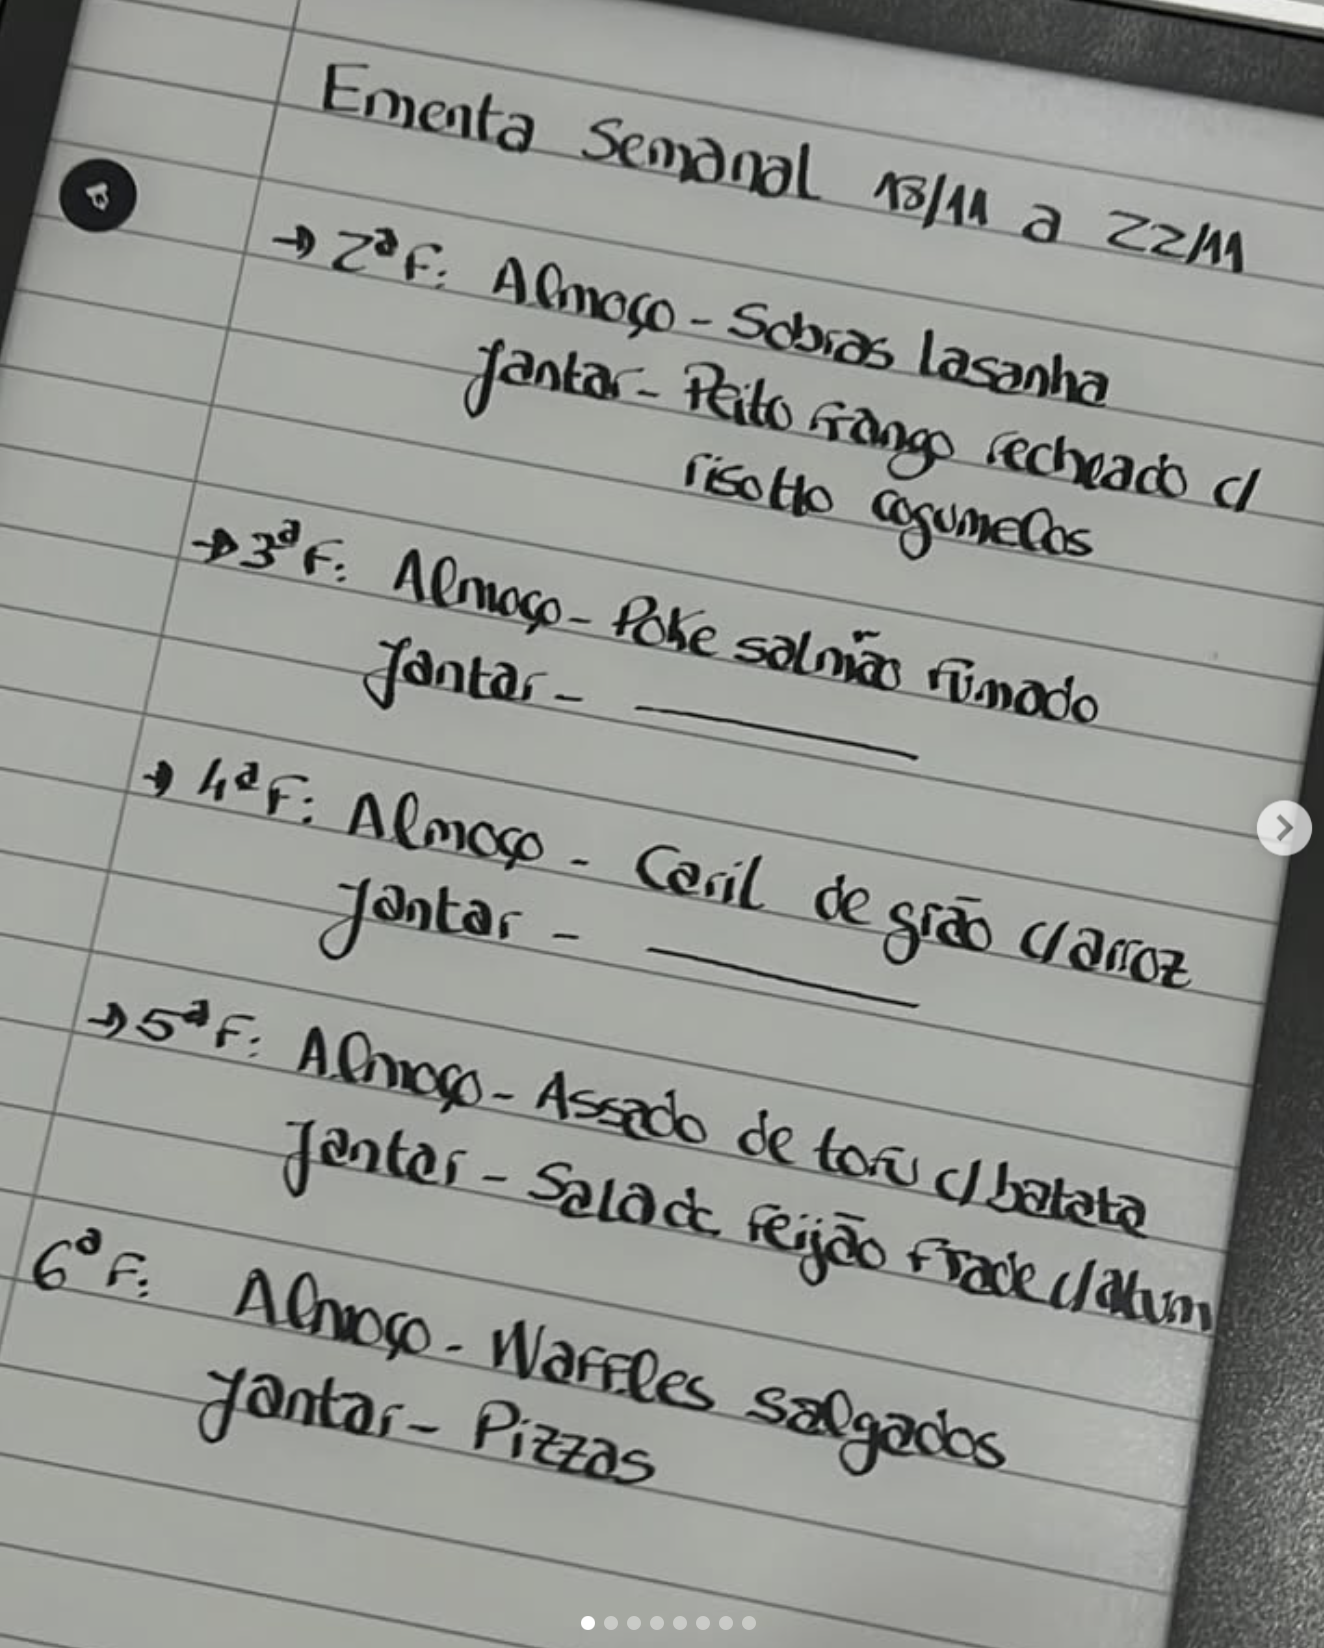 Ementa Semanal 18/11 a 22/11
→ 2ª F: Almoço - Sobras lasanha
Jantar - Peito frango recheado c/
risotto cogumelos
→ 3ª F: Almoço - Poke salmão fumado
Jantar - ________
→ 4ª F: Almoço - Caril de grão c/arroz
Jantar - ________
→ 5ª F: Almoço - Assado de tofu c/batata
Jantar - Salada feijão frade c/atum
6ª F: Almoço - Waffles salgados
Jantar - Pizzas